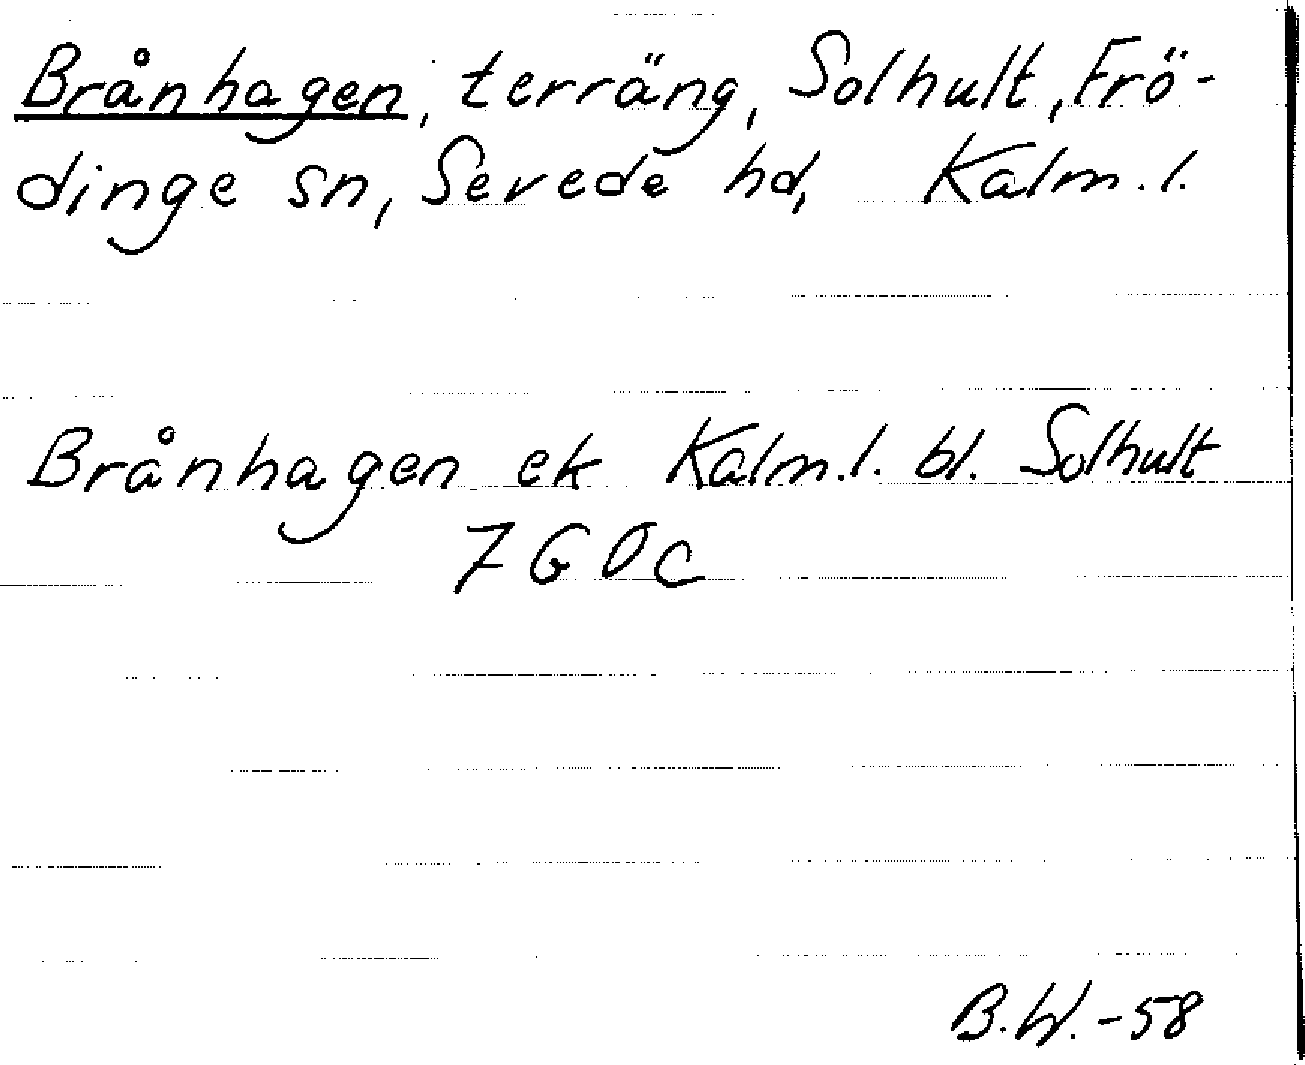 Brånhagen, terräng, Solhult, Frö-
dinge sn, Sevede hd, Kalm. l.
Brånhagen ek Kalm. l. bl. Solhult
7 G 0 c
B.W. -58